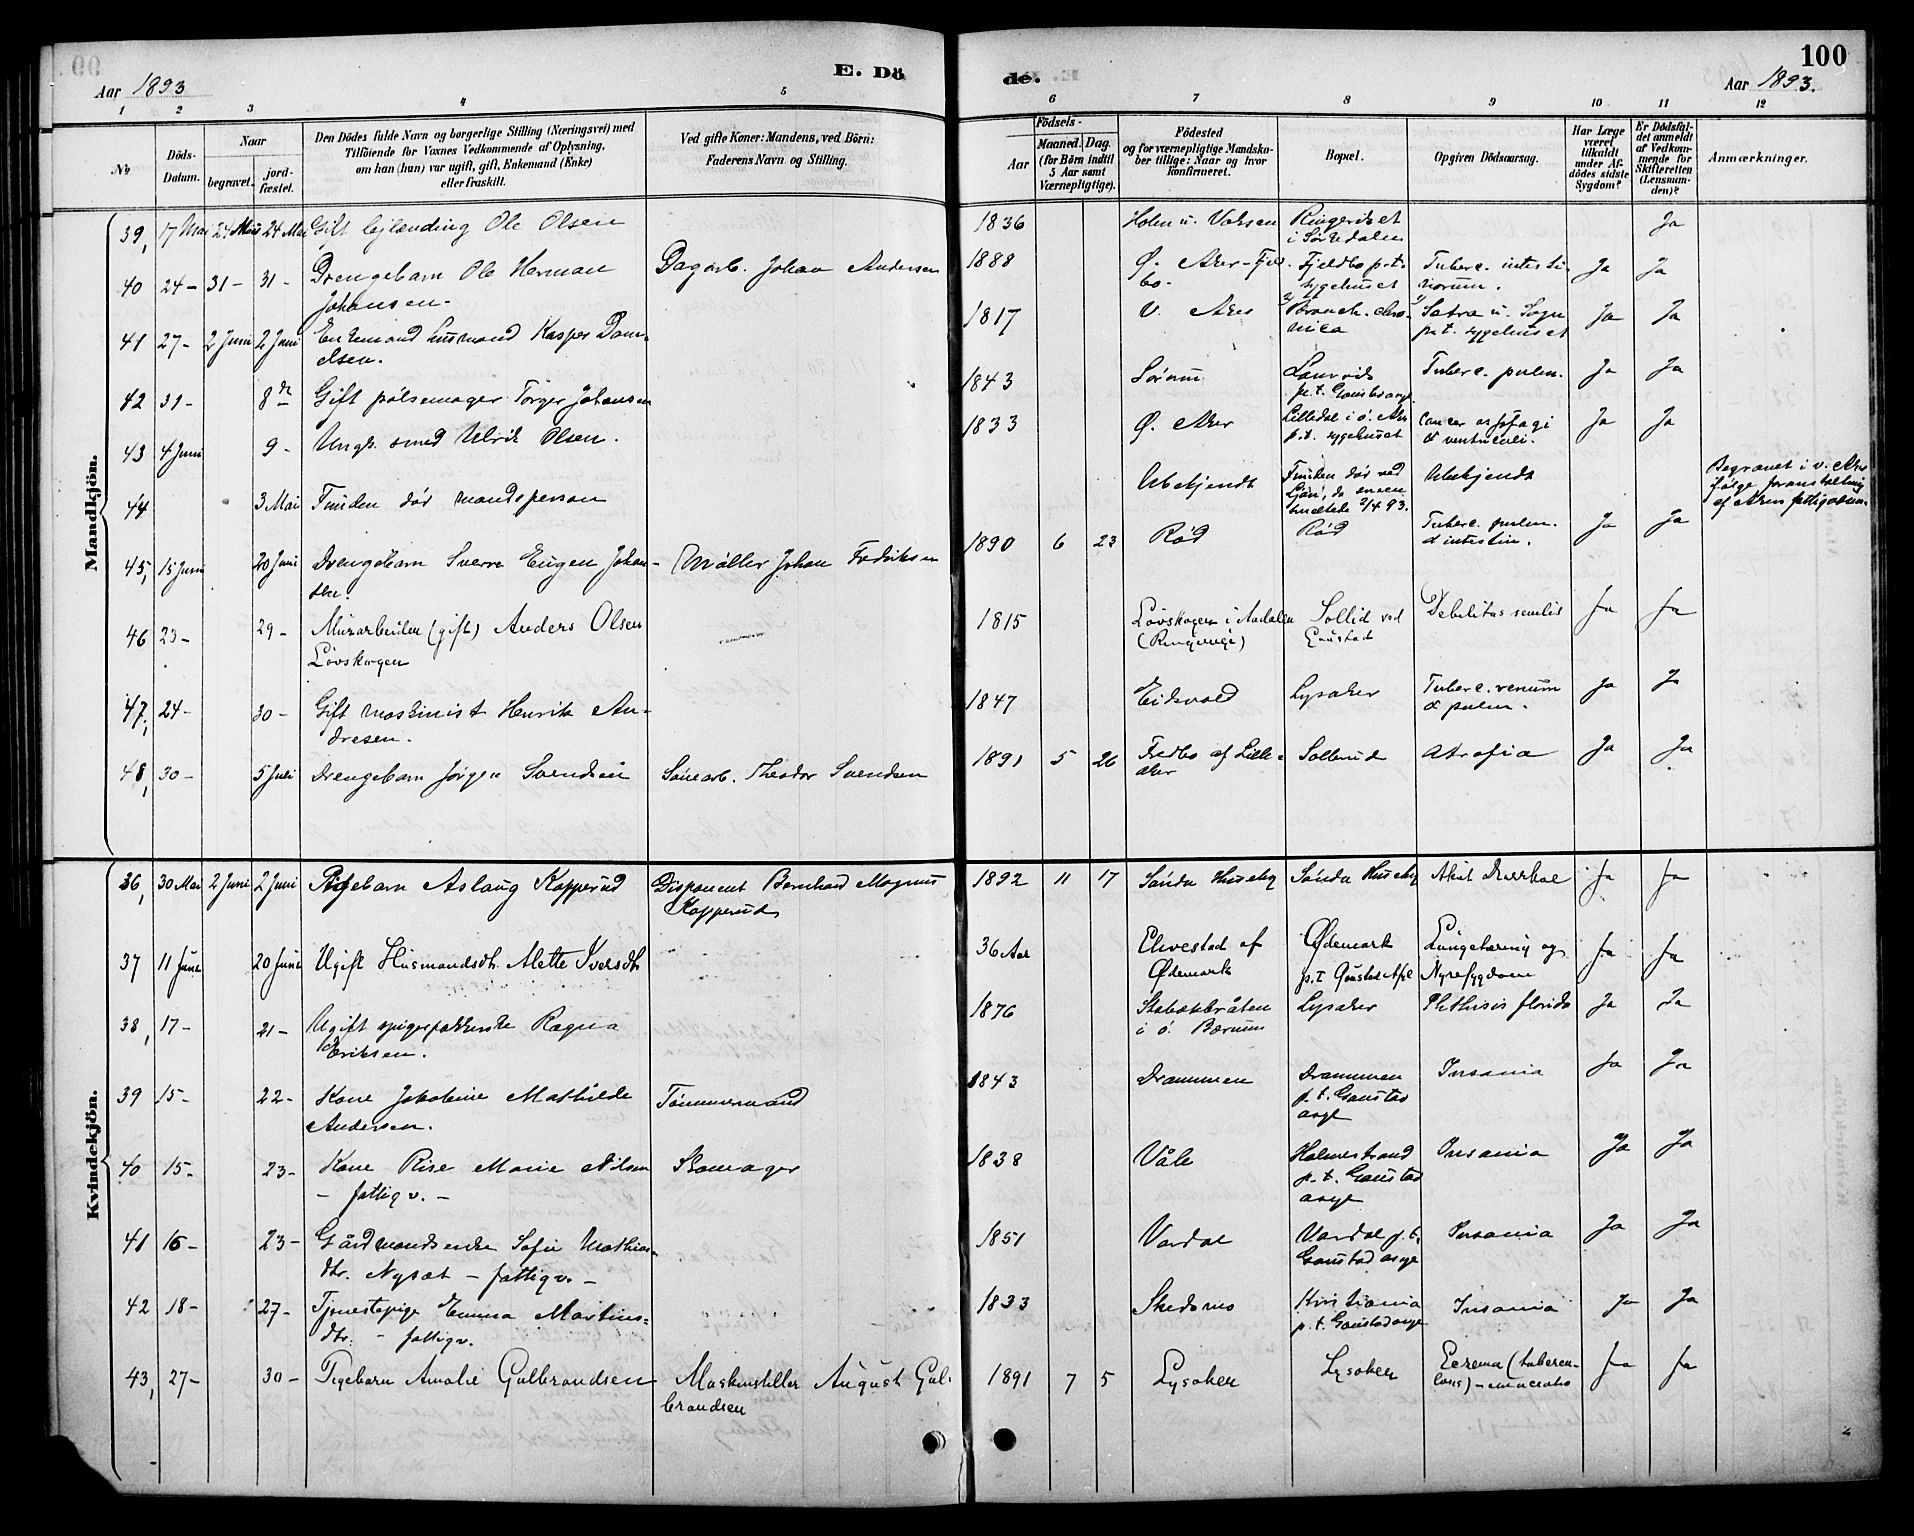 Aar 1893
E. Dö
de.
100
Aar 1893.
1 2 3 4 5 6 7 8 9 10 11 12
No
Döds-
Datum.
Naar
begravet.
jord-
fæstet.
Den Dödes fulde Navn og borgerlige Stilling (Næringsvei) med
Tilföiende for Voxnes Vedkommende af Oplysning,
om han (hun) var ugift, gift, Enkemand (Enke)
eller fraskilt.
Ved gifte Koner: Mandens, ved Börn:
Faderens Navn og Stilling.
Födsels-
Aar
Maaned. Dag.
(for Börn indtil
5 Aar samt
Værnepligtige).
Födested
og for værnepligtige Mandska-
ber tillige: Naar og hvor
konfirmeret.
Bopæl.
Opgiven Dödsaarsag.
Har Læge
været
tilkaldt
under Af-
dödes sidste
Sygdom?
Er Dödsfal-
det anmeldt
af Vedkom-
mende for
Skifteretten
(Lensman-
den)?
Anmærkninger.
Mandkjön.
39, 17 Mai 24 Mai 24 Mai Gift lejlænding Ole Olsen 1836 Holm u. Voksen Ringeriket Ja
i Sørkedalen
40 24- 31- 31- Drengebarn Ole Herman Dagarb. Johan Andersen 1888 Ø. Aker-Fjel- Fjeldbo p.t. Tuberc. intesti- Ja Ja
Johansen. bo. sygehuset norum.
41 27- 2 Juni 2 Juni Enkemand husmand Kasper Dani- 1817 V. Aker 2) Bronch. chro- 1) Sætra u. Sogn Ja Ja
elsen. nica p.t. sygehuset
42 31- 8de Gift pølsemager Torger Johansen 1843 Sørum Laurvik Tuberc. pulm. Ja Ja
p.t. Gaustad asyl
43 4 Juni 9- Ungk. smed Ulrik Olsen. 1833 Ø. Aker Lilledal i ø. Aker Cancer øsofagi Ja Ja
p.t. sygehuset & ventriculi.
44 3 Mai Funden død mandsperson Ubekjendt Funden død ved Ubekjendt Begravet i v. Aker
Ljan, da sneen ifølge foranstaltning
smeltede 2/4 93. af Akers fattigvæsen
45, 15 Juni 20 Juni Drengebarn Sverre Eugen Johan- Møller Johan Fredriksen 1890 6 23 Rød Rød Tuberc. pulm. Ja Ja
sen. & intestin.
46 23- 29- Murarbeider (gift) Anders Olsen 1815 Løvskogen i Aadalen Sollid ved Debilitas senilis Ja Ja
Løvskogen (Ringerige) Gaustad
47, 24- 30- Gift maskinist Henrik An- 1847 Eidsvold Lysaker Tuberc. renum Ja Ja
dresen. & pulm.
48, 30- 5 Juli Drengebarn Jørgen Svendsen Theodor Svendsen 1891 5 26 Fredbo af Lille- Sollerud Atrofia Ja Ja
aker
Kvindekjön.
36, 30 Mai 2 Juni 2 Juni Pigebarn Aslaug Kopperud Disponent Bernhard Magnus 1892 11 17 Søndre Huseby Søndre Huseby Akut Diarrhoe Ja Ja
Kopperud
37 11 Juni 20 Juni Ugift Husmandsdt. Alette Iversdt. 36 Aar Elvestad af Ødemark Lungetæring og Ja Ja
Ødemark p.t. Gaustad Asyl Nyresygdom
38, 17- 21- Ugift spigerpakkerske Ragna 1876 Stabækbråten Lysaker Phthisis florida Ja Ja
Eriksen. i ø. Bærum
39 15- 22- Kone Jakobine Mathilde Tømmermand 1843 Drammen Drammen Insania Ja Ja
Andersen. p.t. Gaustad
asyl
40 15- 23- Kone Rise Marie Nilsen Skomager 1838 Våle Holmestrand Insania Ja Ja
- fattigv. - p.t. Gaustad
asyl
41 16- 23- Gårdmandsenke Sofie Mathias- 1851 Vardal Vardal p.t. Insania Ja Ja
dtr. Nysæt - fattigv. - Gaustad asyl
42 18- 27- Tjenestepige Emma Martins- 1833 Skedsmo Kristiania Insania Ja Ja
dtr. - fattigv. p.t. Gaustad asyl
43, 27- 30- Pigebarn Amalie Gulbrandsen Maskinstiller August Gul- 1891 7 5 Lysaker Lysaker Eczema (tubercu- Ja Ja
brandsen losis) -